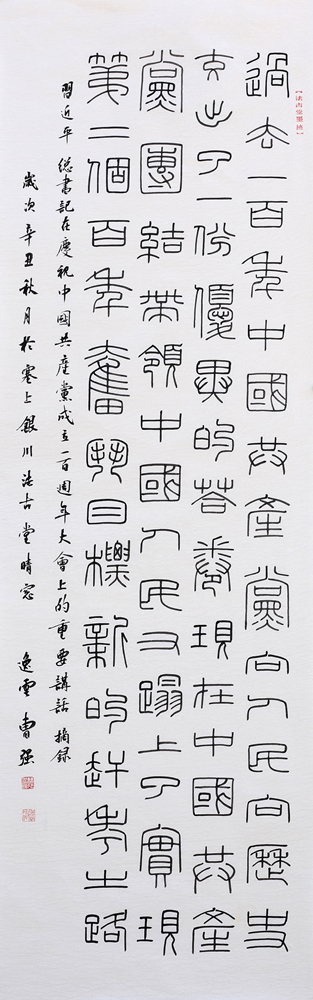 過去一百年中國共產黨向人民向歷史
交出了一份優異的答卷現在中國共產
黨團結帶領中國人民又踏上了實現
第二個百年奮鬥目標新的趕考之路
習近平 總書記在慶祝中國共產黨成立一百週年大會上的重要講話 摘録
歲次辛丑秋月於塞上銀川法古堂晴窓 逸雲 曹强